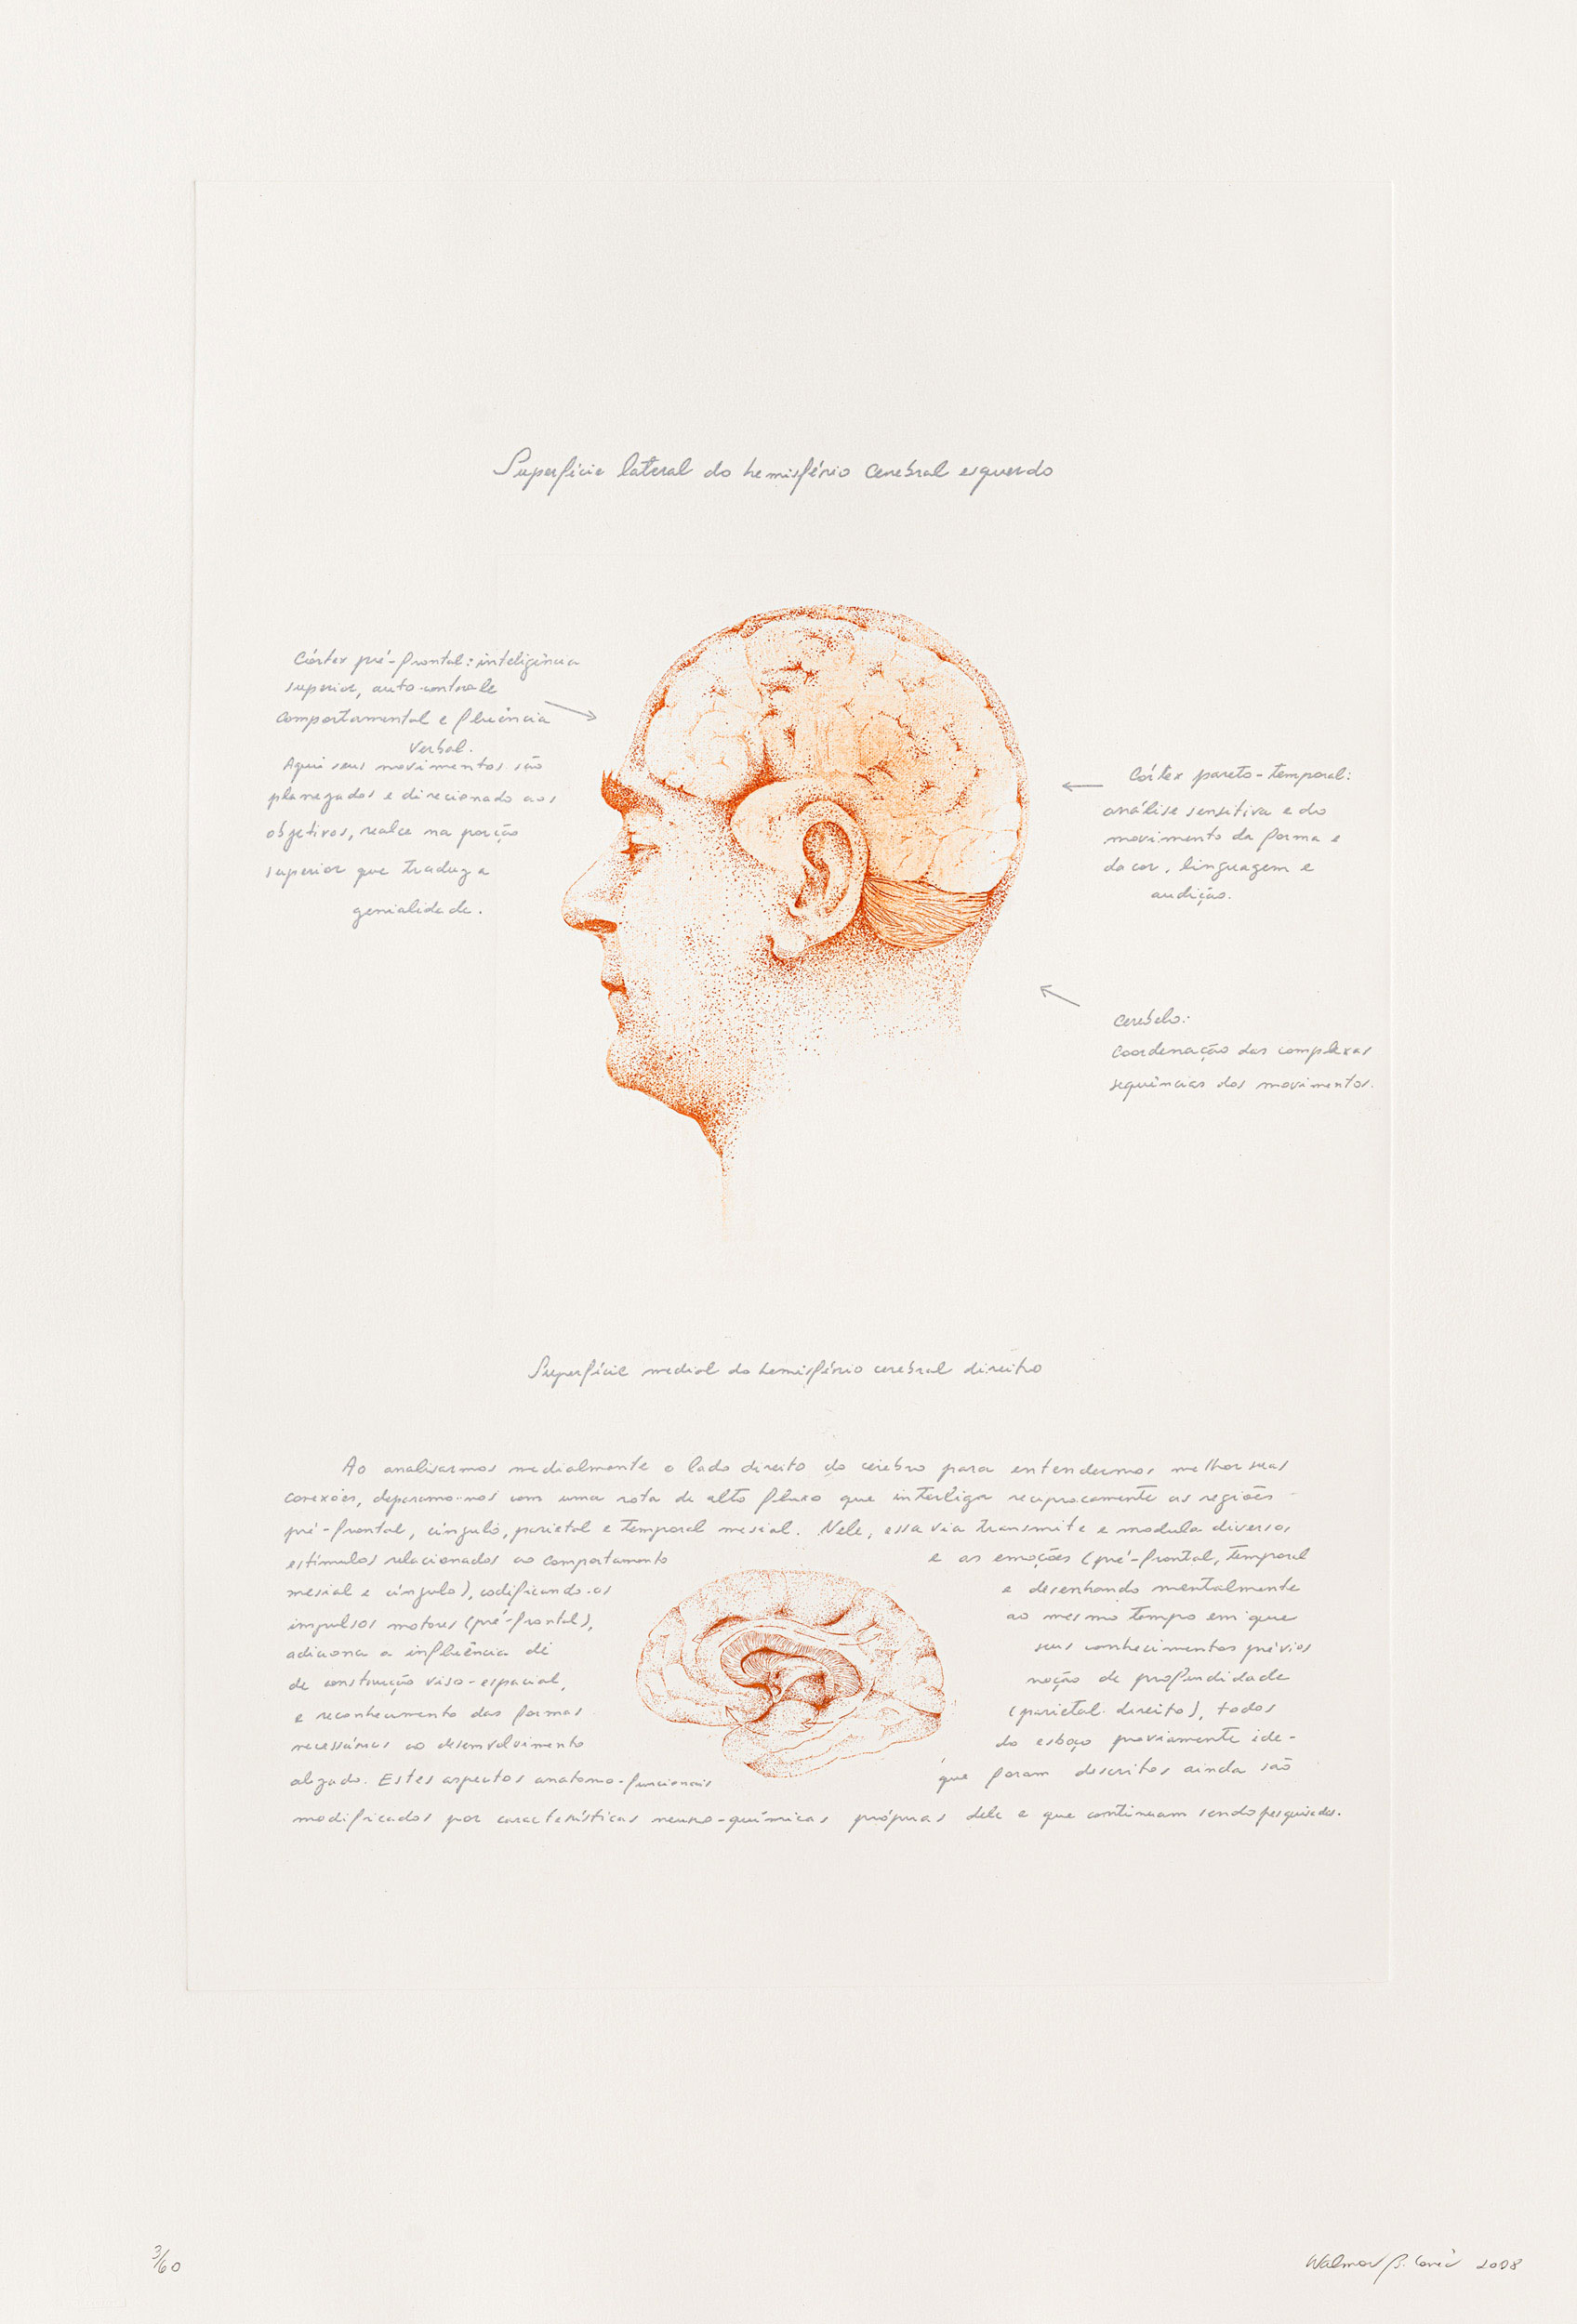 Superfície lateral do hemisfério cerebral esquerdo
Córtex pré-frontal: inteligência
superior, auto-controle
comportamental e fluência
verbal.
Aqui seus movimentos são
planejados e direcionado aos
objetivos, realce na porção
superior que traduz a
genialidade.
Córtex pareto-temporal:
análise sensitiva e do
movimento da forma e
da cor, linguagem e
audição.
Cerébelo:
Coordenação das complexas
sequências dos movimentos.
Superfície medial do hemisfério cerebral direito
Ao analisarmos medialmente o lado direito do cérebro para entendermos melhor suas
conexões, deparamo-nos com uma rota de alto fluxo que interliga reciprocamente as regiões
pré-frontal, cíngulo, parietal e temporal mesial. Nele, essa via transmite e modula diversos
estímulos relacionados ao comportamento e as emoções (pré-frontal, temporal
mesial e cíngulo), codificando-os e desenhando mentalmente
impulsos motores (pré-frontal), ao mesmo tempo em que
adiciona a influência de seus conhecimentos prévios
de construção viso-espacial, noção de profundidade
e reconhecimento das formas (parietal direito), todos
necessários ao desenvolvimento do esboço previamente ide-
alizado. Estes aspectos anatomo-funcionais que foram descritos ainda são
modificados por características neuro-químicas próprias dele e que continuam sendo pesquisadas.
3/60
Walmor B. 2008